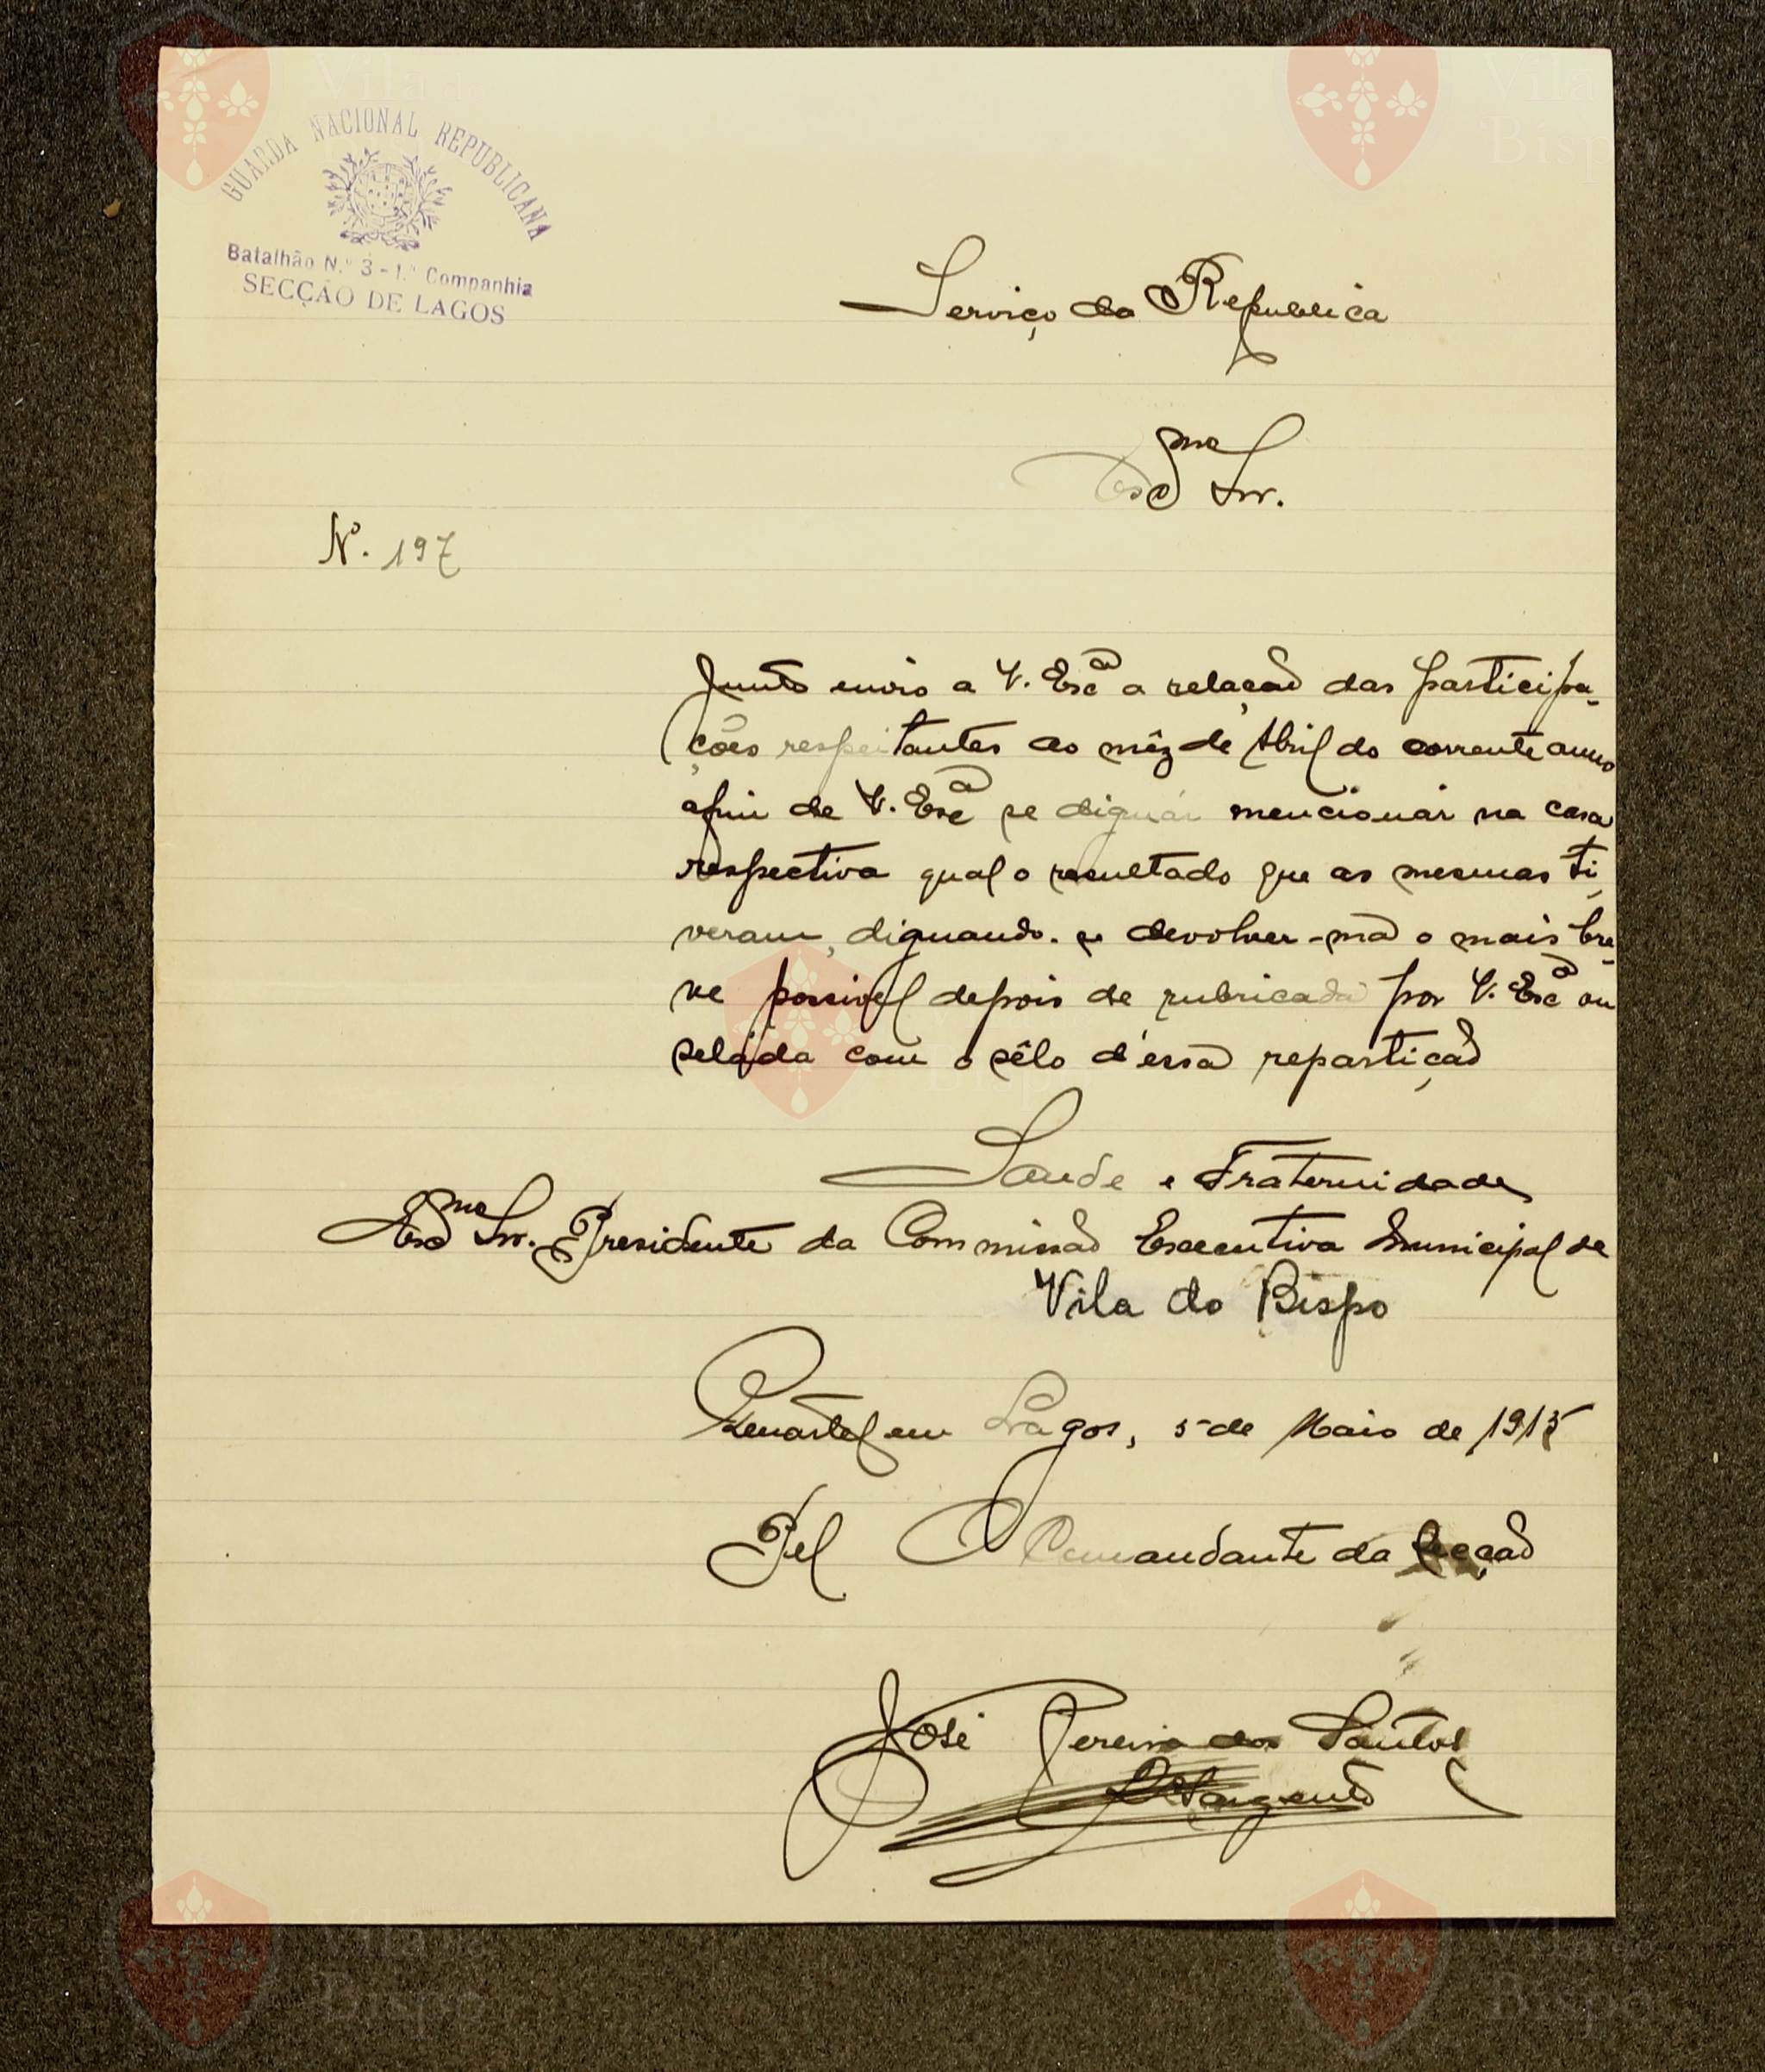 GUARDA NACIONAL REPUBLICANA
Batalhão N.º 3 - 1.ª Companhia
SECÇÃO DE LAGOS
Serviço da Republica
Exmo Snr.
Nº. 197
Junto envio a V. Exca a relação das participa-
ções respeitantes ao mêz de Abril do corrente anno
afim de V. Exca se dignár mencionár na casa
respectiva qual o resultado que as mesmas ti-
veram, dignando-se devolver-ma o mais bre-
ve possivel depois de rubricada por V. Exca ou
seláda com o sêlo d'essa repartição
Saude e Fraternidade
Exmo Snr. Presidente da Commissão Executiva Municipal de
Vila do Bispo
Quartel em Lagos, 5 de Maio de 1915
Pel O Comandante da Secção
José Pereira dos Santos
Sargento
Vila do
Bispo